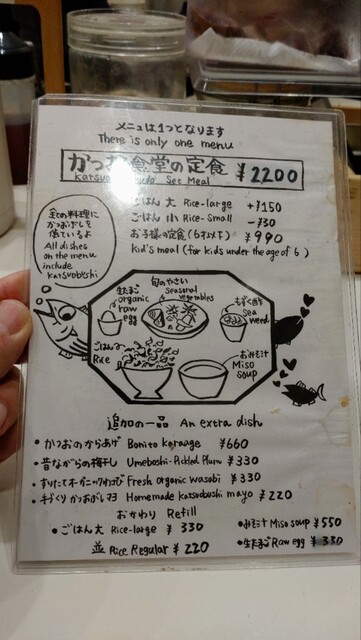 メニューは1つとなります
There is only one menu
かつお食堂の定食 ¥2200
Katsuo Set Meal
ごはん 大 Rice-large +¥150
ごはん 小 Rice-Small -¥30
お子様の定食(6才以下) ¥990
Kid's meal (for kids under the age of 6)
全ての料理に
かつおぶしを
使っているよ
All dishes
on the menu
include
katsuobushi
生たまご
organic
raw
egg
旬のやさい
seasonal
vegetables
もずく酢
sea
weed
ごはん
Rice
おみそ汁
Miso
soup
追加の一品 An extra dish
・かつおのからあげ Bonito Karaage ¥660
・昔ながらの梅干し Umeboshi-Pickled Plum ¥330
・すりたてオーガニックわさび Fresh Organic Wasabi ¥330
・手づくりかつおぶしマヨ Homemade Katsuobushi mayo ¥220
おかわり Refill
・ごはん 大 Rice-large ¥330
並 Rice Regular ¥220
・みそ汁 Miso soup ¥550
・生たまご Raw egg ¥330